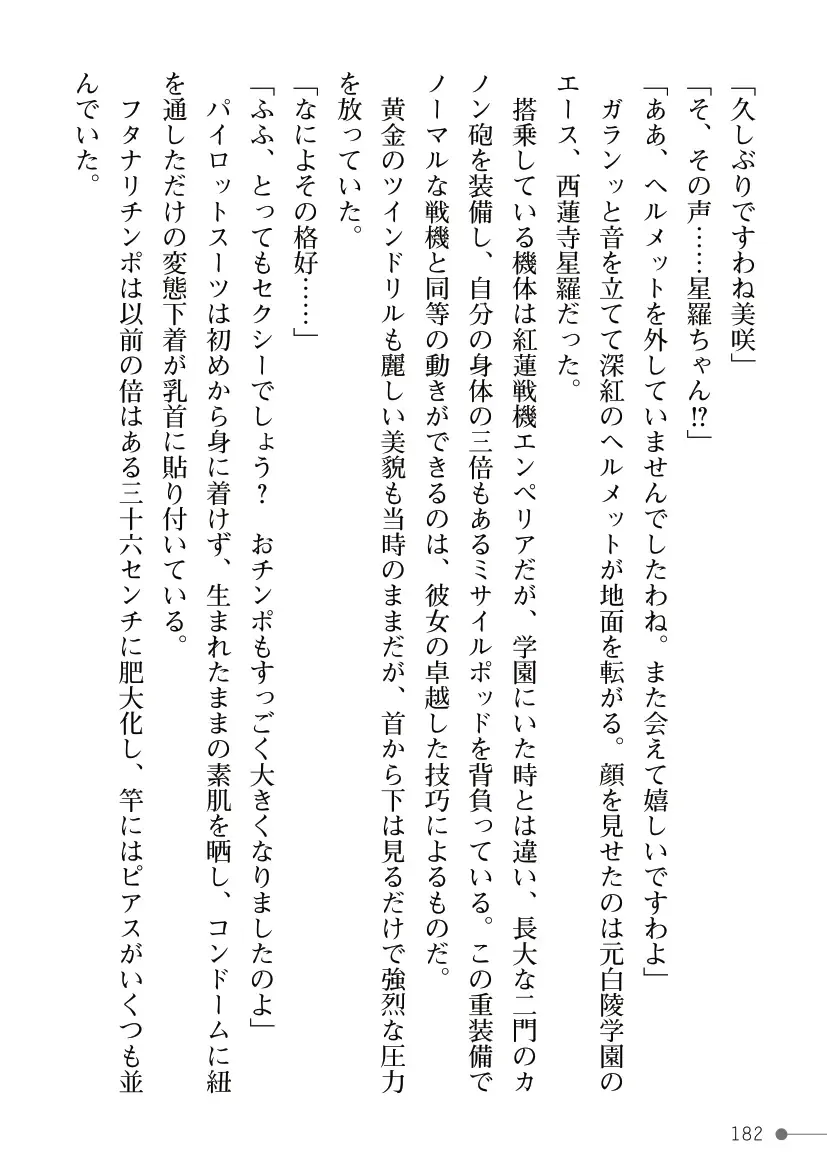 「久しぶりですわね美咲」
「そ、その声……星羅ちゃん⁉」
「ああ、ヘルメットを外していませんでしたわね。また会えて嬉しいですわよ」
　ガランッと音を立てて深紅のヘルメットが地面を転がる。顔を見せたのは元白陵学園の
エース、西蓮寺星羅だった。
　搭乗している機体は紅蓮戦機エンペリアだが、学園にいた時とは違い、長大な二門のカ
ノン砲を装備し、自分の身体の三倍もあるミサイルポッドを背負っている。この重装備で
ノーマルな戦機と同等の動きができるのは、彼女の卓越した技巧によるものだ。
　黄金のツインドリルも麗しい美貌も当時のままだが、首から下は見るだけで強烈な圧力
を放っていた。
「なによその格好……」
「ふふ、とってもセクシーでしょう？　おチンポもすっごく大きくなりましたのよ」
　パイロットスーツは初めから身に着けず、生まれたままの素肌を晒し、コンドームに紐
を通しただけの変態下着が乳首に貼り付いている。
　フタナリチンポは以前の倍はある三十六センチに肥大化し、竿にはピアスがいくつも並
んでいた。
182